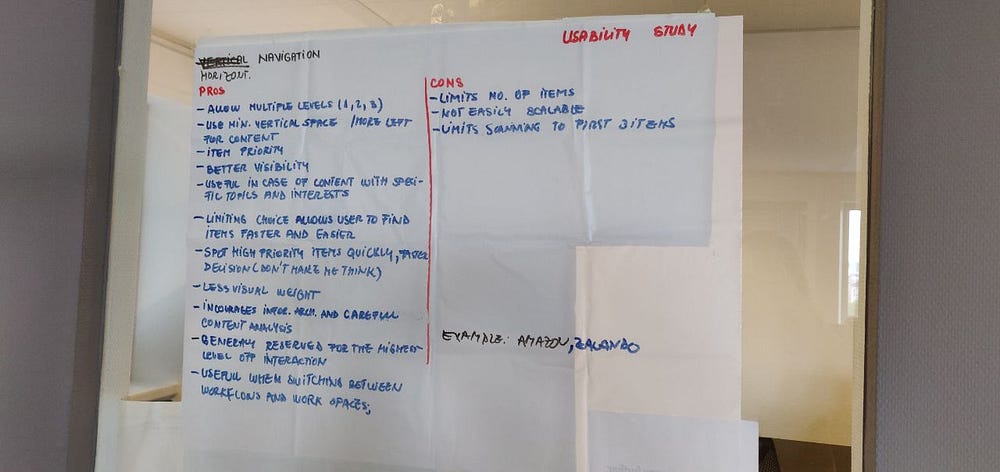 USABILITY STUDY
VERTICAL NAVIGATION
HORIZONT.
PROS
- ALLOW MULTIPLE LEVELS (1, 2, 3)
- USE MIN. VERTICAL SPACE / MORE LEFT
FOR CONTENT
- ITEM PRIORITY
- BETTER VISIBILITY
- USEFUL IN CASE OF CONTENT WITH SPECI-
FIC TOPICS AND INTERESTS
- LIMITING CHOICE ALLOWS USER TO FIND
ITEMS FASTER AND EASIER
- SPOT HIGH PRIORITY ITEMS QUICKLY, FASTER
DECISION (DON'T MAKE ME THINK)
- LESS VISUAL WEIGHT
- INCOURAGES INFOR. ARCH. AND CAREFUL
CONTENT ANALYSIS
- GENERALY RESERVED FOR THE HIGHEST
LEVEL OFF INTERACTION
- USEFULL WHEN SWITCHING BETWEEN
WORKFLOWS AND WORK SPACES;
CONS
- LIMITS NO. OF ITEMS
- NOT EASILY SCALABLE
- LIMITS SCANNING TO FIRST 3 ITEMS
EXAMPLE: AMAZON, ZALANDO